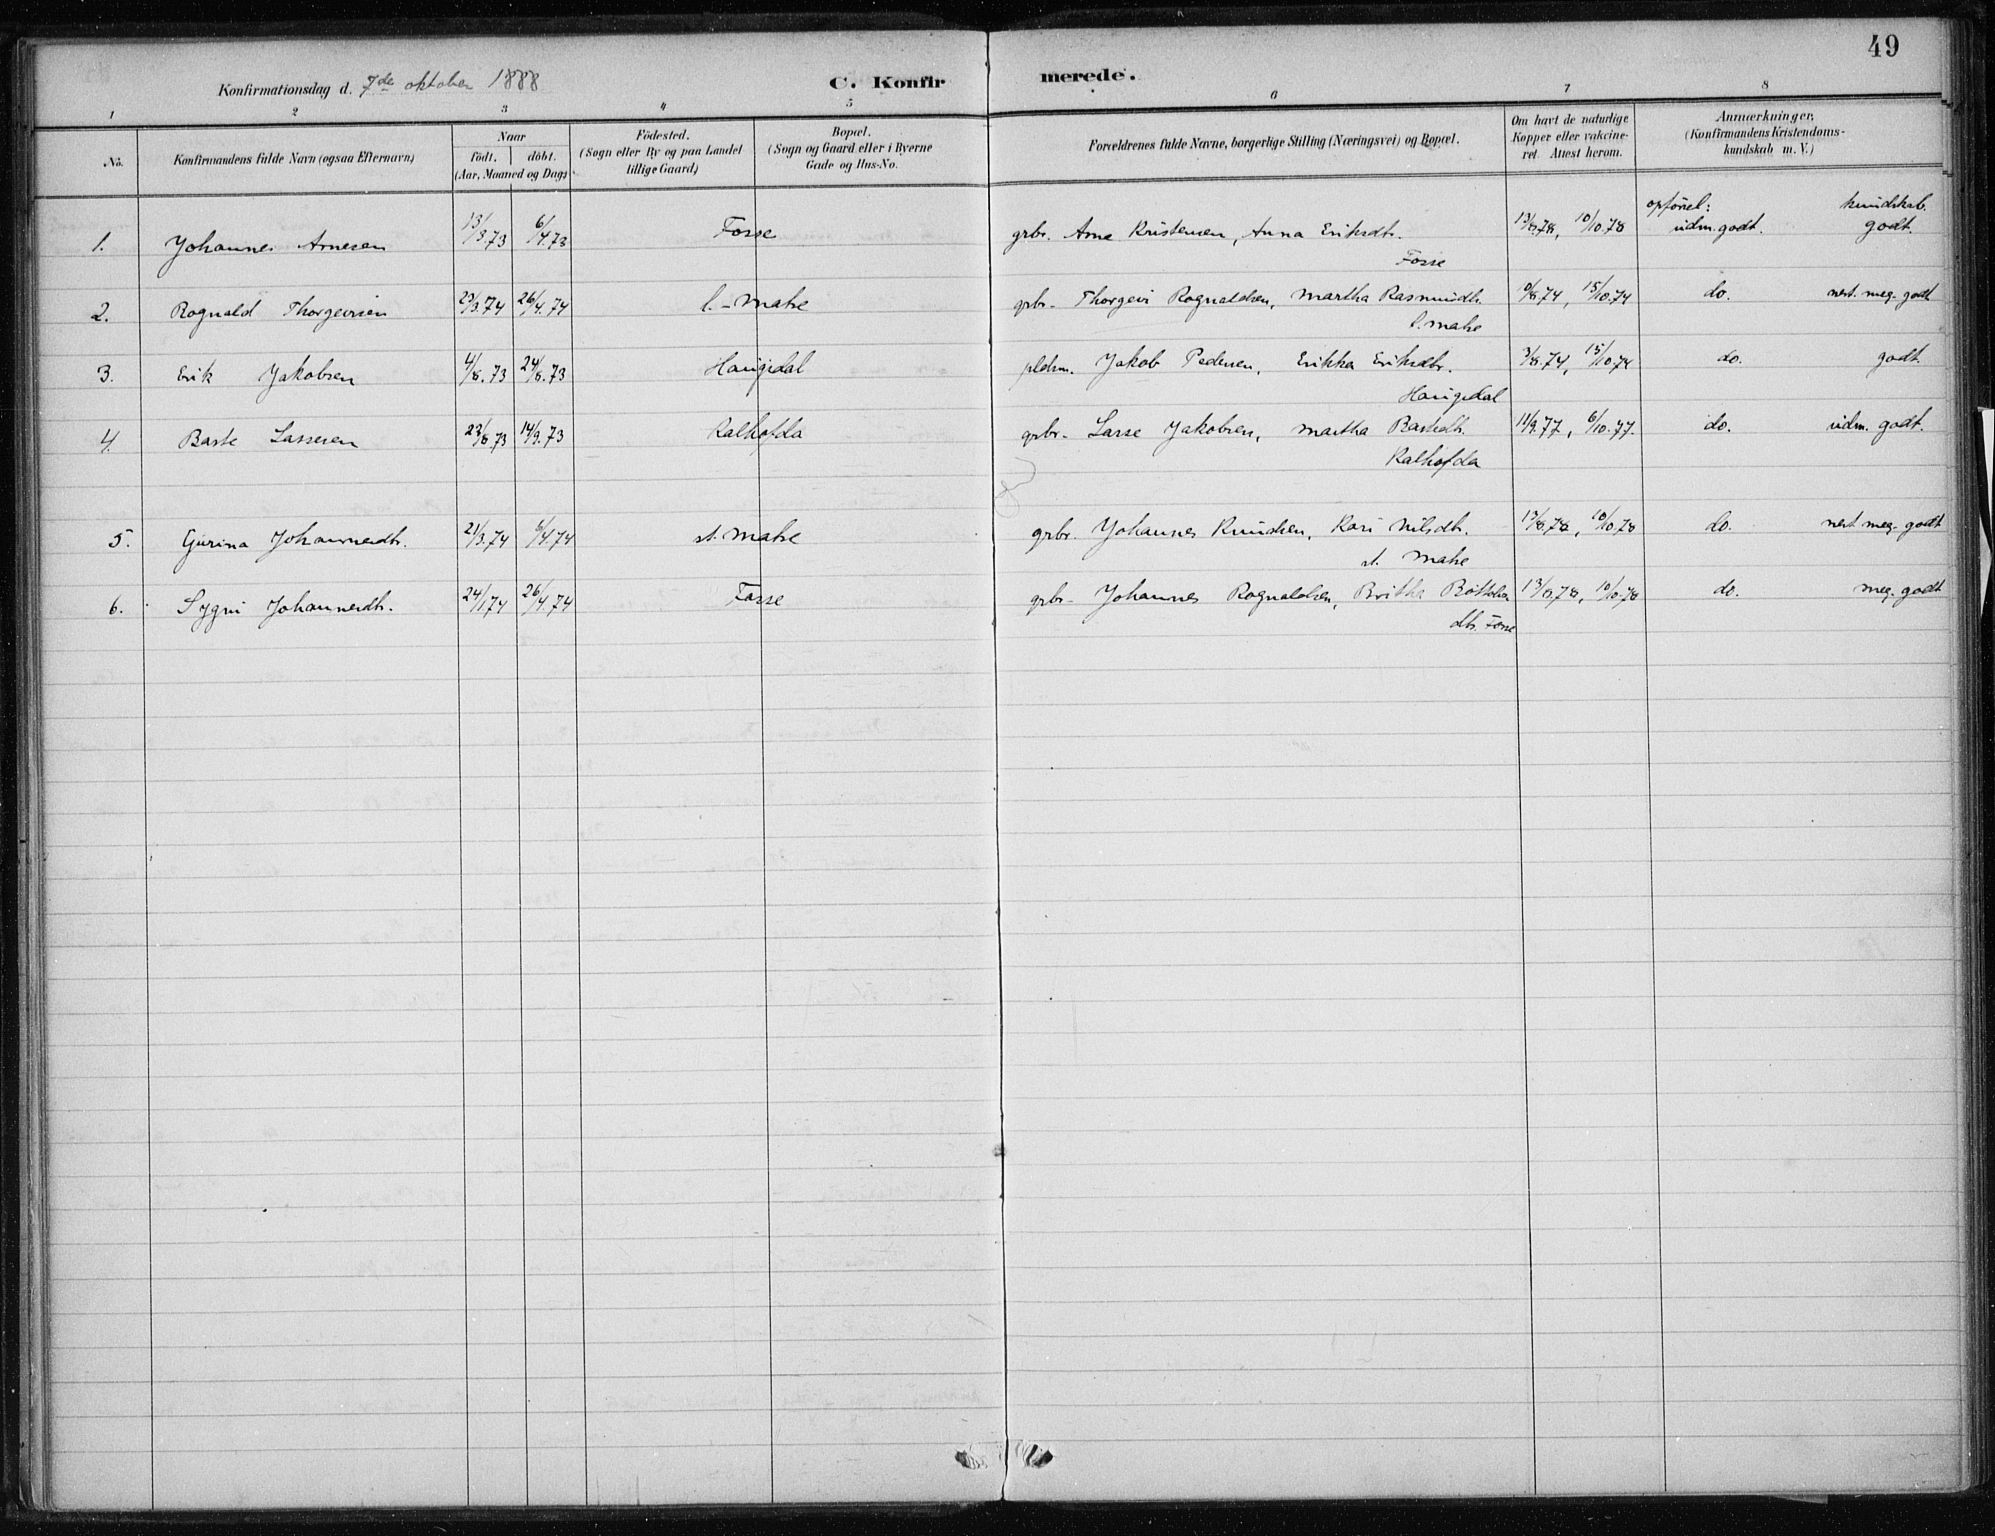 49
Konfirmationsdag d. 7de oktober 1888 C. Konfirmerede.
1 2 3 4 5 6 7 8
No. Konfirmandens fulde Navn (ogsaa Efternavn) Naar födt. döbt. (Aar, Maaned og Dag) Födested. (Sogn eller By og paa Landet tillige Gaard) Bopæl. (Sogn og Gaard eller i Byerne Gade og Hus-No. Forældrenes fulde Navne, borgerlige Stilling (Næringsvei) og Bopæl. Om havt de naturlige Kopper eller vakcineret. Attest herom. Anmærkninger. (Konfirmandens Kristendomskundskab m. V.)
opförsel: kundskab.
1. Johannes Arnesen 13/3.73 6/4.73 Fosse grbr. Arne Kristensen, Anna Eriksdtr. 13/8.78, 10/10.78 udm. godt. godt.
Fosse
2. Rognald Thorgeirsen 23/3.74 26/4.74 l. - Matre grbr. Thorgeir Rognaldsen, Martha Rasmusdtr. /8.74, 15/10.74 do. next. meg. godt
l. Matre
3. Erik Jakobsen 4/8.73 24/8.73 Haugsdal pldsm. Jakob Pedersen, Erikka Eriksdtr. 3/8.74, 15/10.74 do. godt.
Haugsdal
4. Baste Lassesen 23/8.73 14/9.73 Kalhofda grbr. Lasse Jakobsen, Martha Bastedtr. 11/9.77, 6/10.77. do. udm. godt.
Kalhofda
5. Gurina Johannesdtr. 21/3.74 6/4 74 st. Matre grbr. Johannes Knudsen, Kari Nilsdtr. 13/8.78, 10/10.78 do. nest. meg. godt
st. Matre
6. Sygni Johannesdtr. 24/1 74 26/4.74 Fosse grbr. Johannes Rognaldsen, Britha Bottolvs 13/8.78, 10/10.78 do. meg. godt
dtr. Fosse